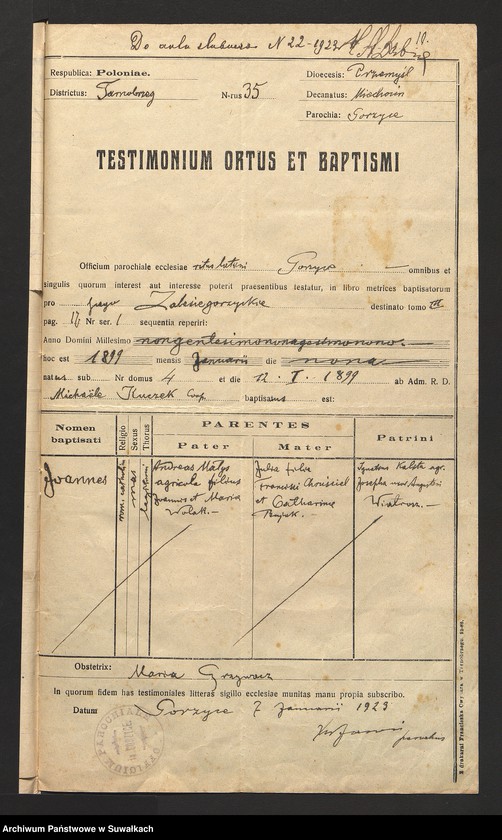 Do aktu slubnego N 22 - 1923
10.
Respublica: Poloniae.
Dioecesis: Przemyśl
Districtus: Tarnobrzeg
N-rus 35
Decanatus: Miechocin
Parochia: Gorzyce
TESTIMONIUM ORTUS ET BAPTISMI
Officium parochiale ecclesiae ritus latini Gorzyce omnibus et
singulis quorum interest aut interesse poterit praesentibus testatur, in libro metrices baptisatorum
pro pago Zalesie gorzyckie destinato tomo III
pag. 17 Nr ser. 1 sequentia reperiri:
Anno Domini Millesimo nongentesimo nonagesimo nono
hoc est 1899 mensis Januarii die nona
natus sub Nr domus 4 et die 12. I. 1899 ab Adm. R. D.
Michaële Kuczek Coop. baptisatus est:
Nomen baptisati
Religio
Sexus
Thorus
PARENTES
Pater
Mater
Patrini
Joannes
rom. cathol.
mas
legitimi
Andreas Małys
agricola filius
Joannis et Maria
Wolak
Julia filia
Francisci
et Catharinae
Ignatius agr.
Josepha uxor Augustini
Wiatrow
Obstetrix: Maria Grzywacz
In quorum fidem has testimoniales litteras sigillo ecclesiae munitas manu propia subscribo.
Datum Gorzyce 7 Januarii 1923
parochus
OFFICIUM PAROCHIALE
Archiwum Państwowe w Suwałkach